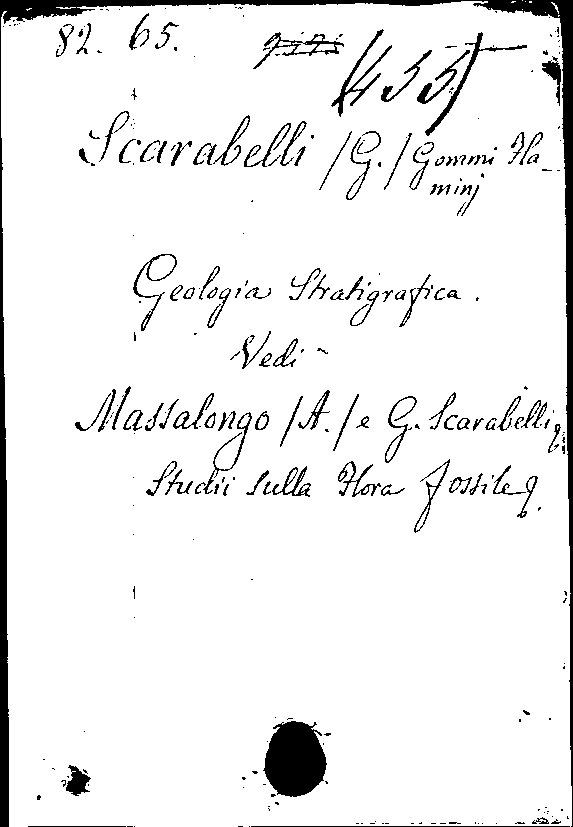 82. 65.
(455)
Scarabelli /G./ Gommi Fla-
minj
Geologia Stratigrafica.
Vedi -
Massalongo /A./ e G. Scarabelli,
Studii sulla Flora fossile